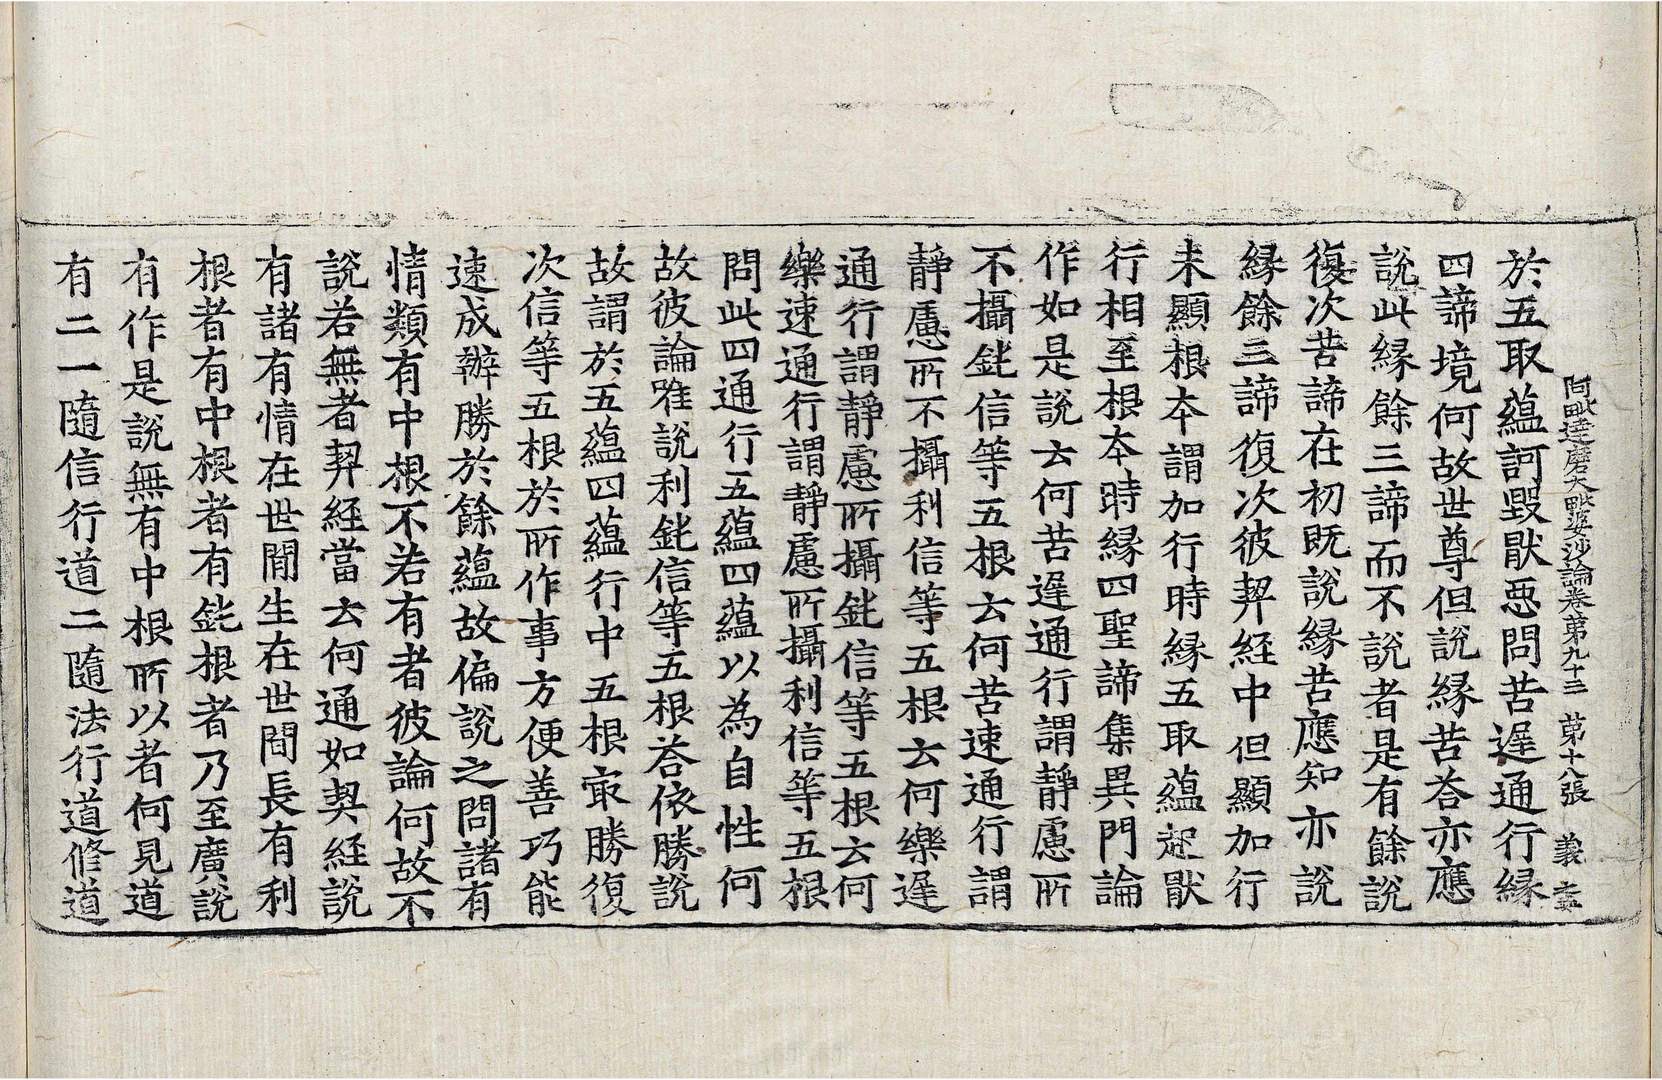 阿毗達磨大毗婆沙論卷第九十三 第十八張 義
於五取蘊訶毀猒惡問苦遲通行緣
四諦境何故世尊但說緣苦荅亦應
說此緣餘三諦而不說者是有餘說
復次苦諦在初旣說緣苦應知亦說
緣餘三諦復次彼契經中但顯加行
未顯根本謂加行時緣五取蘊起猒
行相至根本時緣四聖諦集異門論
作如是說云何苦遲通行謂靜慮所
不攝鈍信等五根云何苦速通行謂
靜慮所不攝利信等五根云何樂遲
通行謂靜慮所攝鈍信等五根云何
樂速通行謂靜慮所攝利信等五根
問此四通行五蘊四蘊以為自性何
故彼論唯說利鈍信等五根荅依勝說
故謂於五蘊四蘊行中五根㝡勝復
次信等五根於所作事方便善巧能
速成辦勝於餘蘊故偏說之問諸有
情類有中根不若有者彼論何故不
說若無者契經當云何通如契經說
有諸有情在世閒生在世閒長有利
根者有中根者有鈍根者乃至廣說
有作是說無有中根所以者何見道
有二一隨信行道二隨法行道修道